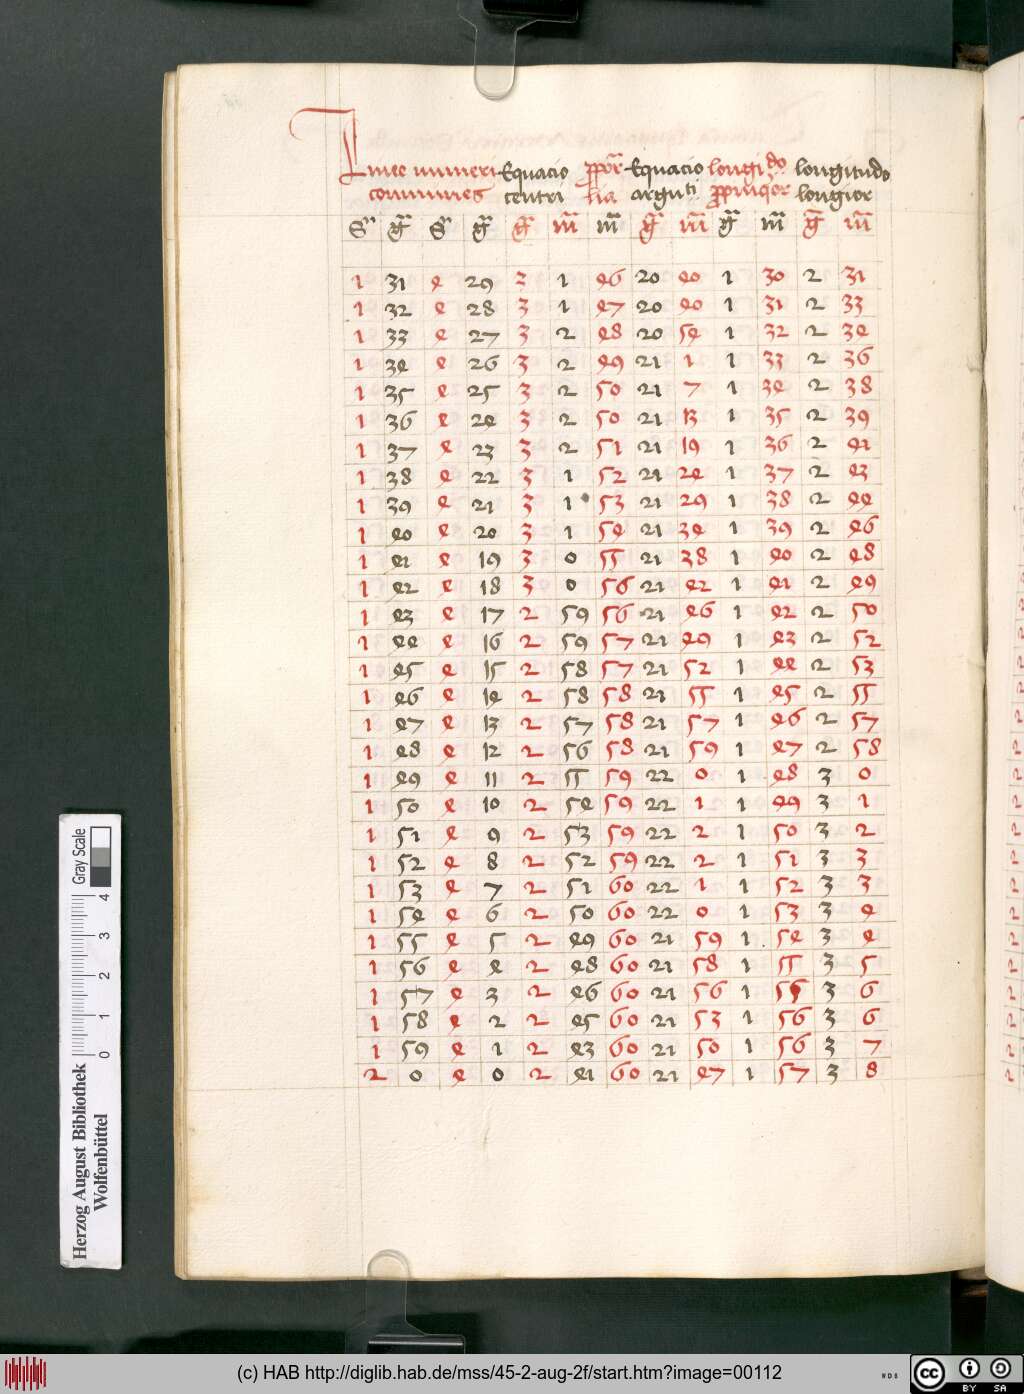 Linee numeri Equacio ppor Equacio longido longitudo
communes centri lia arguti ppinqor longior
S g S g g m m g m g m g m
1 31 4 29 3 1 46 20 40 1 30 2 31
1 32 4 28 3 1 47 20 40 1 31 2 33
1 33 4 27 3 2 48 20 54 1 32 2 34
1 34 4 26 3 2 49 21 1 1 33 2 36
1 35 4 25 3 2 50 21 7 1 34 2 38
1 36 4 24 3 2 50 21 13 1 35 2 39
1 37 4 23 3 2 51 21 19 1 36 2 41
1 38 4 22 3 1 52 21 24 1 37 2 43
1 39 4 21 3 1 53 21 29 1 38 2 44
1 40 4 20 3 1 54 21 34 1 39 2 46
1 41 4 19 3 0 55 21 38 1 40 2 48
1 42 4 18 3 0 56 21 42 1 41 2 49
1 43 4 17 2 59 56 21 46 1 42 2 50
1 44 4 16 2 59 57 21 49 1 43 2 52
1 45 4 15 2 58 57 21 52 1 44 2 53
1 46 4 14 2 58 58 21 55 1 45 2 55
1 47 4 13 2 57 58 21 57 1 46 2 57
1 48 4 12 2 56 58 21 59 1 47 2 58
1 49 4 11 2 55 59 22 0 1 48 3 0
1 50 4 10 2 54 59 22 1 1 49 3 1
1 51 4 9 2 53 59 22 2 1 50 3 2
1 52 4 8 2 52 59 22 2 1 51 3 3
1 53 4 7 2 51 60 22 1 1 52 3 3
1 54 4 6 2 50 60 22 0 1 53 3 4
1 55 4 5 2 49 60 21 59 1 54 3 4
1 56 4 4 2 48 60 21 58 1 55 3 5
1 57 4 3 2 46 60 21 56 1 55 3 6
1 58 4 2 2 45 60 21 53 1 56 3 6
1 59 4 1 2 43 60 21 50 1 56 3 7
2 0 4 0 2 41 60 21 47 1 57 3 8
Herzog August Bibliothek
Wolfenbüttel
0 1 2 3 4
Gray Scale
(c) HAB http://diglib.hab.de/mss/45-2-aug-2f/start.htm?image=00112
cc BY SA